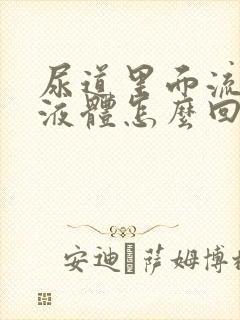 尿道里面流
液體怎麼回
安迪·薩姆博